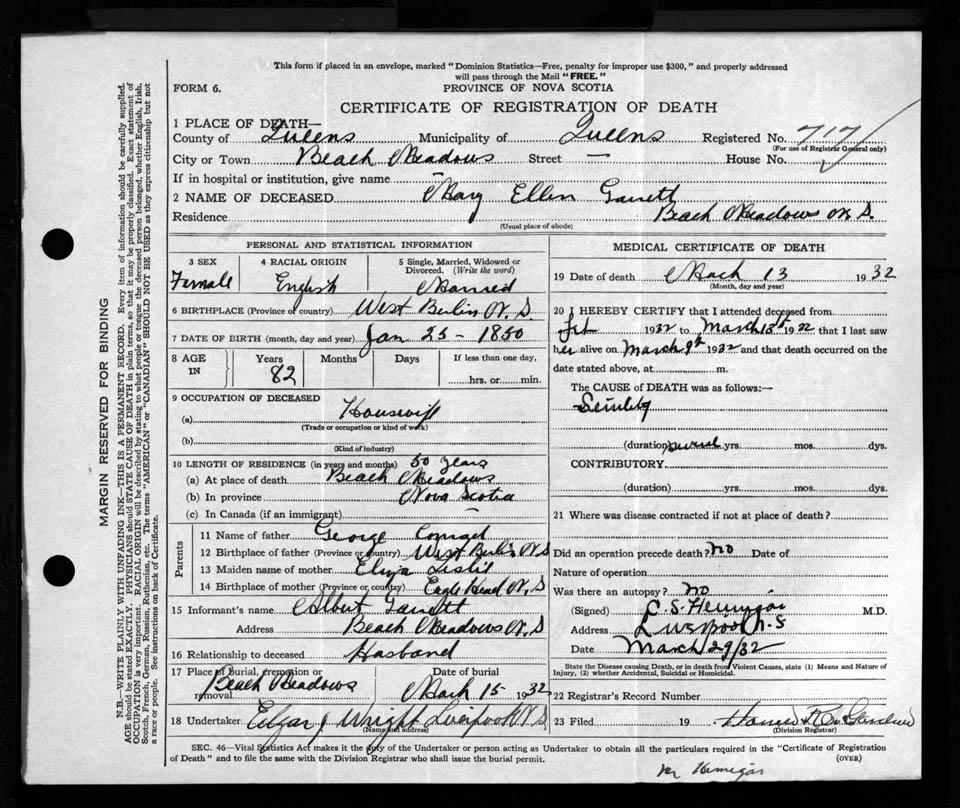 This form if placed in an envelope, marked "Dominion Statistics—Free, penalty for improper use $300," and properly addressed
will pass through the Mail "FREE."
FORM 6.
PROVINCE OF NOVA SCOTIA
CERTIFICATE OF REGISTRATION OF DEATH
1 PLACE OF DEATH—
County of Queens Municipality of Queens Registered No. 717
(For use of Registrar General only)
City or Town Beach Meadows Street — House No.
If in hospital or institution, give name –
2 NAME OF DECEASED Mary Ellen Garrett
Residence Beach Meadows N.S.
(Usual place of abode)
MARGIN RESERVED FOR BINDING
N.B.—WRITE PLAINLY WITH UNFADING INK—THIS IS A PERMANENT RECORD. Every item of information should be carefully supplied.
AGE should be stated EXACTLY. PHYSICIANS should STATE CAUSE OF DEATH in plain terms, so that it may be properly classified. Exact statement of
OCCUPATION is very important. RACIAL ORIGIN will be described by stating to what people or tongue the deceased person belonged, whether English, Irish,
Scotch, French, German, Russian, Ruthenian, etc. The terms "AMERICAN" or "CANADIAN" SHOULD NOT BE USED as they express citizenship but not
a race or people. See instructions on back of Certificate.
PERSONAL AND STATISTICAL INFORMATION
3 SEX
Female
4 RACIAL ORIGIN
English
5 Single, Married, Widowed or
Divorced. (Write the word)
Married
6 BIRTHPLACE (Province or country) West Berlin N.S.
7 DATE OF BIRTH (month, day and year) Jan 25 - 1850
8 AGE
IN
Years
82
Months
Days
If less than one day,
hrs. or min.
9 OCCUPATION OF DECEASED
(a) Housewife
(Trade or occupation or kind of work)
(b)
(Kind of industry)
10 LENGTH OF RESIDENCE (in years and months) 50 years
(a) At place of death Beach Meadows
(b) In province Nova Scotia
(c) In Canada (if an immigrant) –
Parents
11 Name of father George Conrad
12 Birthplace of father (Province or country) West Berlin N.S
13 Maiden name of mother Eliza Leslie
14 Birthplace of mother (Province or country) Eagle Head N.S
15 Informant's name Albert Garrett
Address Beach Meadows N.S
16 Relationship to deceased Husband
17 Place of burial, cremation or
removal Beach Meadows
Date of burial
March 15 1932
18 Undertaker Edgar J Wright Liverpool N.S
(Name and address)
MEDICAL CERTIFICATE OF DEATH
19 Date of death March 13 1932
(Month, day and year)
20 I HEREBY CERTIFY that I attended deceased from
Feb 1932 to March 13th 1932 that I last saw
her alive on March 9th 1932 and that death occurred on the
date stated above, at m.
The CAUSE of DEATH was as follows:—
Senility
(duration) several yrs. mos. dys.
CONTRIBUTORY
(duration) yrs. mos. dys.
21 Where was disease contracted if not at place of death?
Did an operation precede death? no Date of
Nature of operation
Was there an autopsy? no
(Signed) Hennigar M.D.
Address Liverpool N.S
Date March 29/32
State the Disease causing Death, or in death from Violent Causes, state (1) Means and Nature of
Injury, (2) whether Accidental, Suicidal or Homicidal.
22 Registrar's Record Number
23 Filed 19
(Division Registrar)
SEC. 46—Vital Statistics Act makes it the duty of the Undertaker or person acting as Undertaker to obtain all the particulars required in the "Certificate of Registration
of Death" and to file the same with the Division Registrar who shall issue the burial permit.
(OVER)
Hennigar